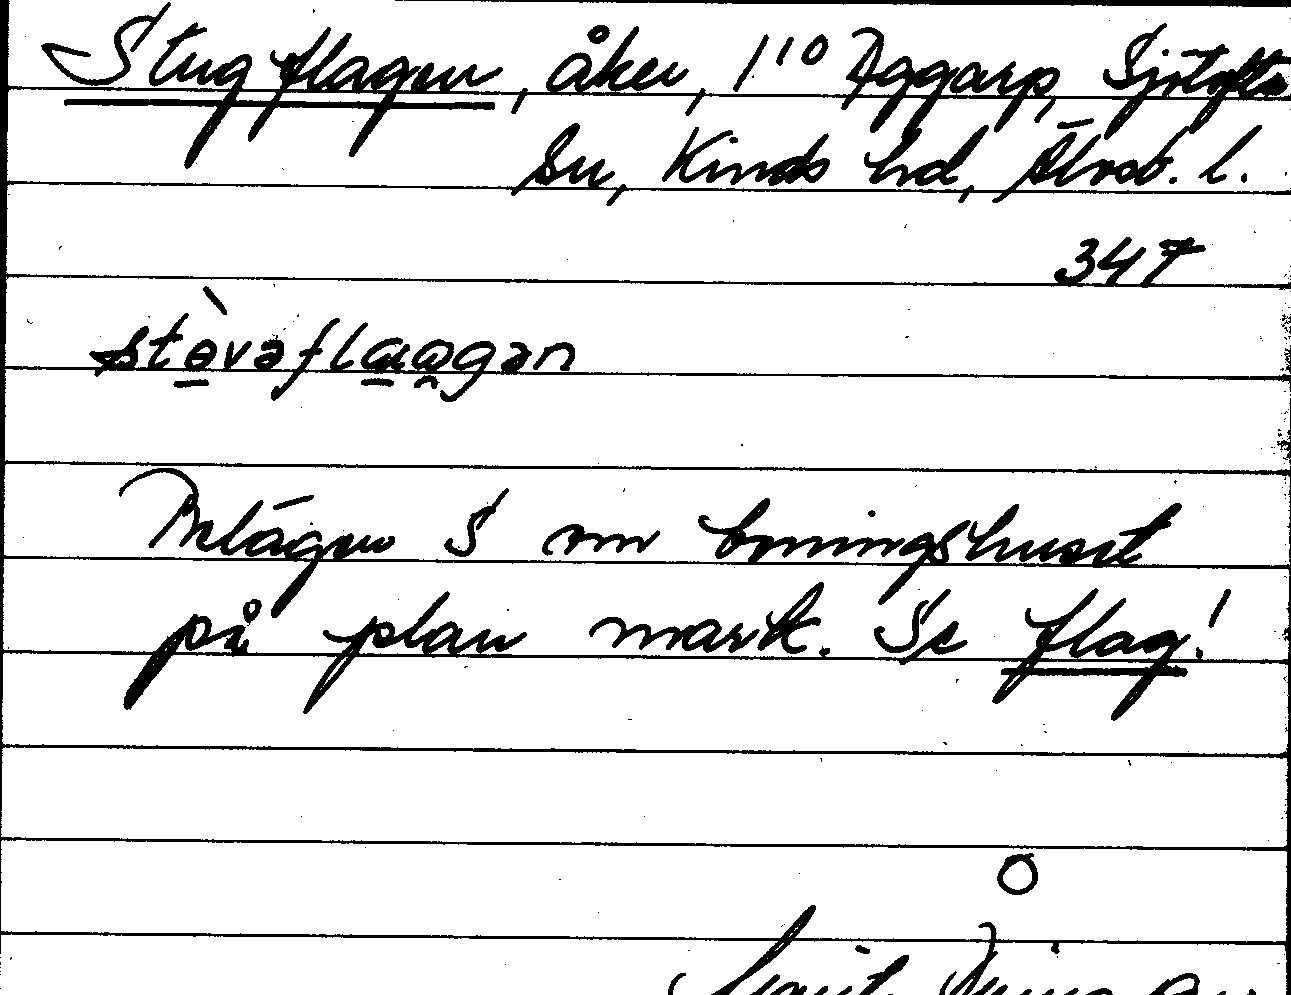 Stugflagen, åker, 1¹⁰ Aggarp, Sjötofta
sn, Kinds hd, Älvsb. l.
347
stὲvəflaagən
Belägen S om boningshuset
på plan mark. Se flag!
O